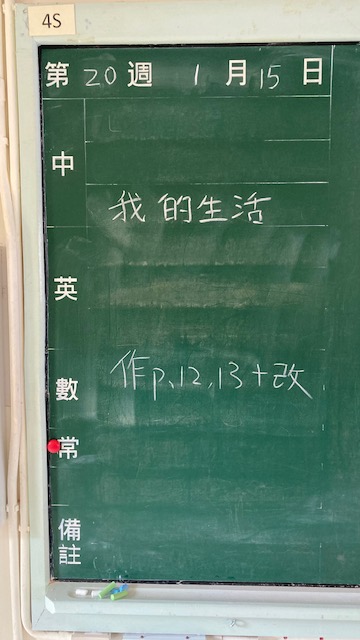 4S
第20週 1月15日
中
我的生活
英
數 作p.12,13+改
常
備註